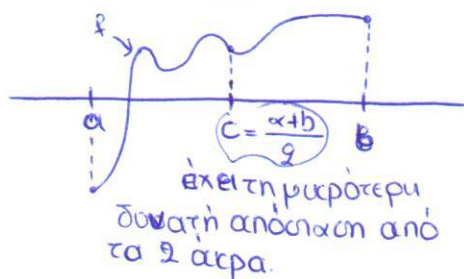 f
a
C = α+b / 2
b
έχει τη μικρότερη
δυνατή απόσταση από
τα 2 άκρα.